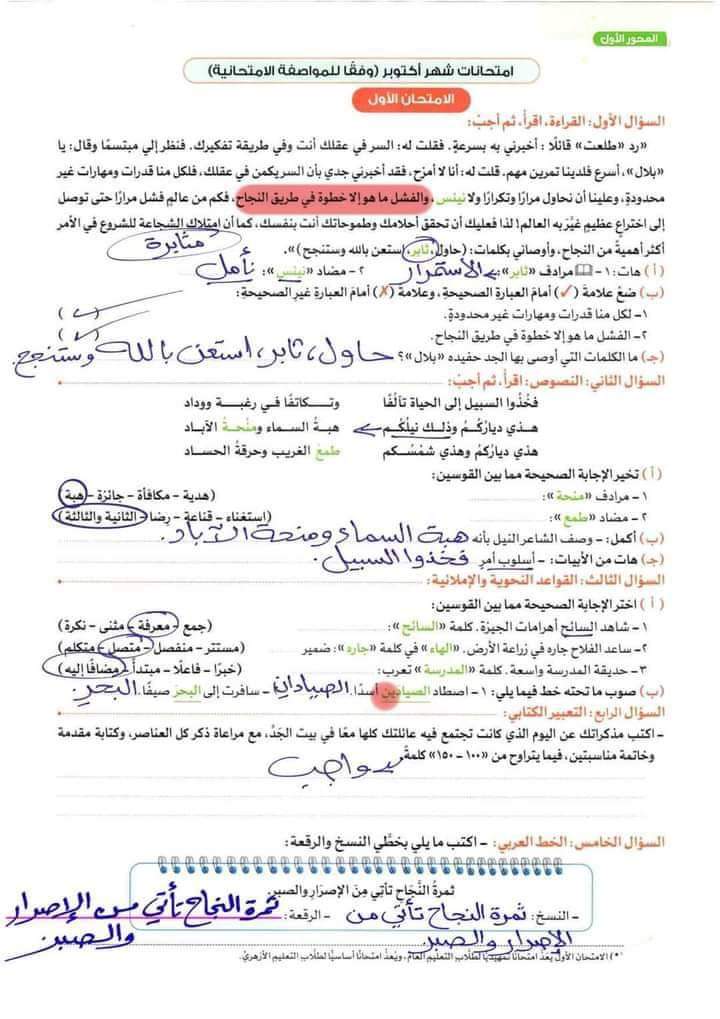 المحور الأول
امتحانات شهر أكتوبر (وفقًا للمواصفة الامتحانية)
الامتحان الأول
السؤال الأول: القراءة، اقرأ، ثم أجب:
«رد «طلعت» قائلًا: أخبرني به بسرعةٍ. فقلت له: السر في عقلك أنت وفي طريقة تفكيرك. فنظر إلي مبتسمًا وقال: يا
«بلال»، أسرع فلدينا تمرين مهم. قلت له: أنا لا أمزح، فقد أخبرني جدي بأن السر يكمن في عقلك، فلكل منا قدرات ومهارات غير
محدودةٍ، وعلينا أن نحاول مرارًا وتكرارًا ولا نيئس، والفشل ما هو إلا خطوة في طريق النجاح، فكم من عالمٍ فشل مرارًا حتى توصل
إلى اختراعٍ عظيمٍ غيَّر به العالم! لذا فعليك أن تحقق أحلامك وطموحاتك أنت بنفسك، كما أن امتلاك الشجاعة للشروع في الأمر
أكثر أهميةً من النجاح، وأوصاني بكلمات: (حاول، ثابر، استعن بالله وستنجح)».
مثابرة
(أ) هات: ١- مرادف «ثابر»: الاستمرار ٢- مضاد «نيئس»: نأمل
(ب) ضع علامة (✓) أمام العبارة الصحيحة، وعلامة (✗) أمام العبارة غير الصحيحة:
١- لكل منا قدرات ومهارات غير محدودةٍ. (✓)
٢- الفشل ما هو إلا خطوة في طريق النجاح. (✓)
(جـ) ما الكلمات التي أوصى بها الجد حفيده «بلال»؟ حاول، ثابر، استعن بالله وستنجح.
السؤال الثاني: النصوص: اقرأ، ثم أجب:
فخُذُوا السبيل إلى الحياة تآلفًا وتكاتفًا في رغبة ووداد
هذي دياركُم وذلك نيلُكُم هبةُ السماء ومنْحةُ الآباد
هذي دياركُمُ وهذي شمْسُكم طمعُ الغريب وحرقةُ الحساد
(أ) تخير الإجابة الصحيحة مما بين القوسين:
١- مرادف «منحة»: (هدية – مكافأة – جائزة – هبة)
٢- مضاد «طمع»: (استغناء – قناعة – رضا – الثانية والثالثة)
(ب) أكمل: - وصف الشاعر النيل بأنه هبة السماء ومنحة الآباد.
(جـ) هات من الأبيات: - أسلوب أمرٍ فخذوا السبيل.
السؤال الثالث: القواعد النحوية والإملائية:
(أ) اختر الإجابة الصحيحة مما بين القوسين:
١- شاهد السائح أهرامات الجيزة. كلمة «السائح»: (جمع – معرفة – مثنى – نكرة)
٢- ساعد الفلاح جاره في زراعة الأرض. «الهاء» في كلمة «جاره»: ضمير (مستتر – منفصل – متصل – متكلم)
٣- حديقة المدرسة واسعة. كلمة «المدرسة» تعرب: (خبرًا – فاعلًا – مبتدأ – مضافًا إليه)
(ب) صوب ما تحته خط فيما يلي: ١- اصطاد الصيادين أسدًا. الصيادان – سافرت إلى البحرَ صيفًا. البحرِ.
السؤال الرابع: التعبير الكتابي:
- اكتب مذكراتك عن اليوم الذي كانت تجتمع فيه عائلتك كلها معًا في بيت الجَدِّ، مع مراعاة ذكر كل العناصر، وكتابة مقدمة
وخاتمة مناسبتين، فيما يتراوح من «١٠٠ – ١٥٠» كلمةً
واجب
السؤال الخامس: الخط العربي: - اكتب ما يلي بخطَّي النسخ والرقعة:
ثمرةُ النَّجاحِ تأتي مِنَ الإصرَارِ والصبرِ.
- النسخ: ثمرة النجاح تأتي من - الرقعة: ثمرة النجاح تأتي من الإصرار
الإصرار والصبر والصبر
(*) الامتحان الأول يُعدُّ امتحانًا تمهيديًا لطلَّاب التعليم العامِّ، ويُعدُّ امتحانًا أساسيًا لطلَّاب التعليم الأزهريِّ.